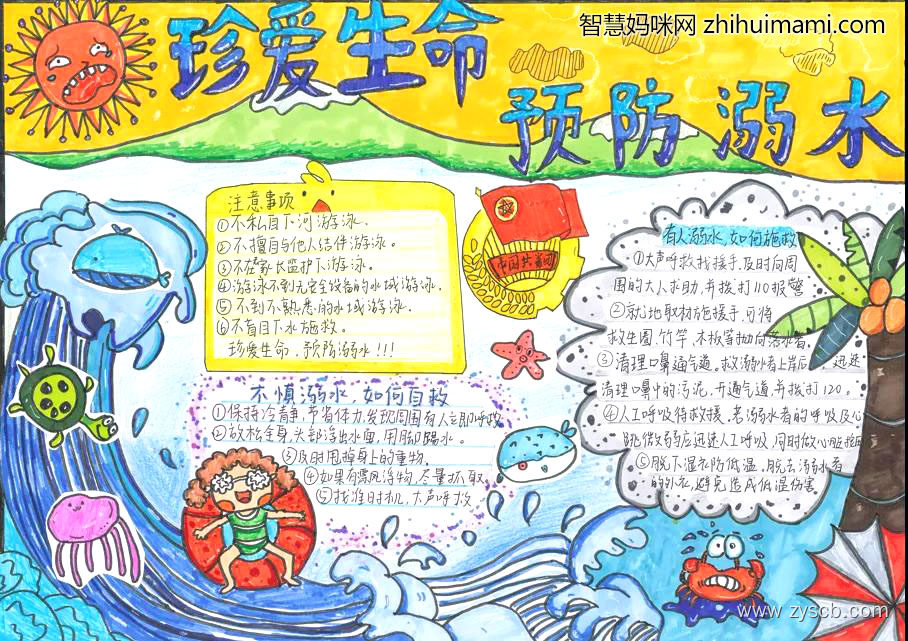 智慧妈咪网 zhihuimami.com
珍爱生命
预防溺水
注意事项
①不私自下河游泳.
②不擅自与他人结伴游泳。
③不在家长监护下游泳。
④游泳不到无安全设备的水域游泳.
⑤不到不熟悉的水域游泳.
⑥不盲目下水施救。
珍爱生命,预防溺水!!!
中国共青团
不慎溺水,如何自救
①保持冷静,节省体力,发现周围有人立即呼救
②放松全身,头部浮出水面,用脚踢水。
③及时甩掉身上的重物.
④如果有漂浮物,尽量抓取
⑤找准时机,大声呼救
有人溺水,如何施救
①大声呼救找援手,及时向周
围的大人求助,并拨打110报警
②就地取材施援手,可将
救生圈,竹竿,木板等抛向落水者.
③清理口鼻通气道,救溺水者上岸后 迅速
清理口鼻中的污泥,开通气道,并拨打120。
④人工呼吸待救援,若溺水者的呼吸及心
跳微弱后迅速人工呼吸,同时做心脏按
⑤脱下湿衣防低温,脱去溺水者
的外衣,避免造成低温伤害
www.zyscb.com